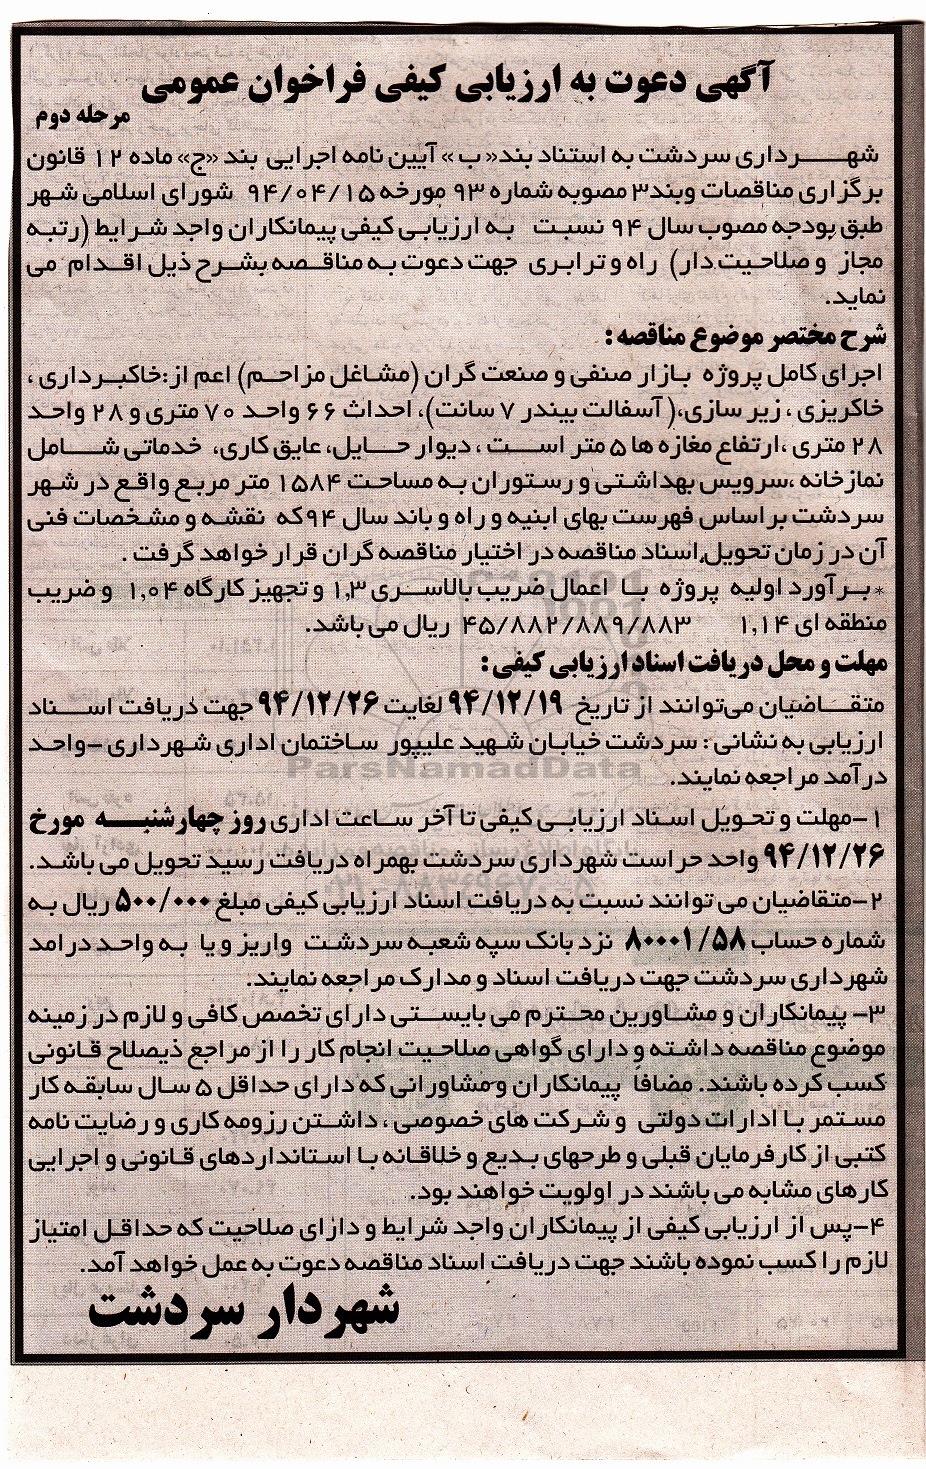 آگهی دعوت به ارزیابی کیفی فراخوان عمومی
مرحله دوم
شهرداری سردشت به استناد بند« ب» آیین نامه اجرایی بند «ج» ماده ۱۲ قانون
برگزاری مناقصات وبند۳ مصوبه شماره ۹۳ مورخه ۹۴/۰۴/۱۵ شورای اسلامی شهر
طبق بودجه مصوب سال ۹۴ نسبت به ارزیابی کیفی پیمانکاران واجد شرایط (رتبه
مجاز و صلاحیت دار) راه و ترابری جهت دعوت به مناقصه بشرح ذیل اقدام می
نماید.
شرح مختصر موضوع مناقصه :
اجرای کامل پروژه بازار صنفی و صنعت گران (مشاغل مزاحم) اعم از:خاکبرداری ،
خاکریزی ، زیر سازی،( آسفالت بیندر ۷ سانت)، احداث ۶۶ واحد ۷۰ متری و ۲۸ واحد
۲۸ متری ،ارتفاع مغازه ها ۵ متر است ، دیوار حایل، عایق کاری، خدماتی شامل
نمازخانه ،سرویس بهداشتی و رستوران به مساحت ۱۵۸۴ متر مربع واقع در شهر
سردشت بر اساس فهرست بهای ابنیه و راه و باند سال ۹۴که نقشه و مشخصات فنی
آن در زمان تحویل اسناد مناقصه در اختیار مناقصه گران قرار خواهد گرفت .
*برآورد اولیه پروژه با اعمال ضریب بالاسری ۱٫۳ و تجهیز کارگاه ۱٫۰۴ و ضریب
منطقه ای ۱٫۱۴ ۴۵/۸۸۲/۸۸۹/۸۸۳ ریال می باشد.
مهلت و محل دریافت اسناد ارزیابی کیفی :
متقاضیان می‌توانند از تاریخ ۹۴/۱۲/۱۹ لغایت ۹۴/۱۲/۲۶ جهت دریافت اسناد
ارزیابی به نشانی : سردشت خیابان شهید علیپور ساختمان اداری شهرداری -واحد
درآمد مراجعه نمایند.
ParsNamadData
۱-مهلت و تحویل اسناد ارزیابی کیفی تا آخر ساعت اداری روز چهارشنبه مورخ
۹۴/۱۲/۲۶ واحد حراست شهرداری سردشت بهمراه دریافت رسید تحویل می باشد.
۲-متقاضیان می توانند نسبت به دریافت اسناد ارزیابی کیفی مبلغ ۵۰۰/۰۰۰ ریال به
شماره حساب ۸۰۰۰۱/۵۸ نزد بانک سپه شعبه سردشت واریز و یا به واحد درامد
شهرداری سردشت جهت دریافت اسناد و مدارک مراجعه نمایند.
۳- پیمانکاران و مشاورین محترم می بایستی دارای تخصص کافی و لازم در زمینه
موضوع مناقصه داشته و دارای گواهی صلاحیت انجام کار را از مراجع ذیصلاح قانونی
کسب کرده باشند. مضافا پیمانکاران و مشاورانی که دارای حداقل ۵ سال سابقه کار
مستمر با ادارات دولتی و شرکت های خصوصی ، داشتن رزومه کاری و رضایت نامه
کتبی از کارفرمایان قبلی و طرحهای بدیع و خلاقانه با استانداردهای قانونی و اجرایی
کارهای مشابه می باشند در اولویت خواهند بود.
۴-پس از ارزیابی کیفی از پیمانکاران واجد شرایط و دارای صلاحیت که حداقل امتیاز
لازم را کسب نموده باشند جهت دریافت اسناد مناقصه دعوت به عمل خواهد آمد.
شهردار سردشت